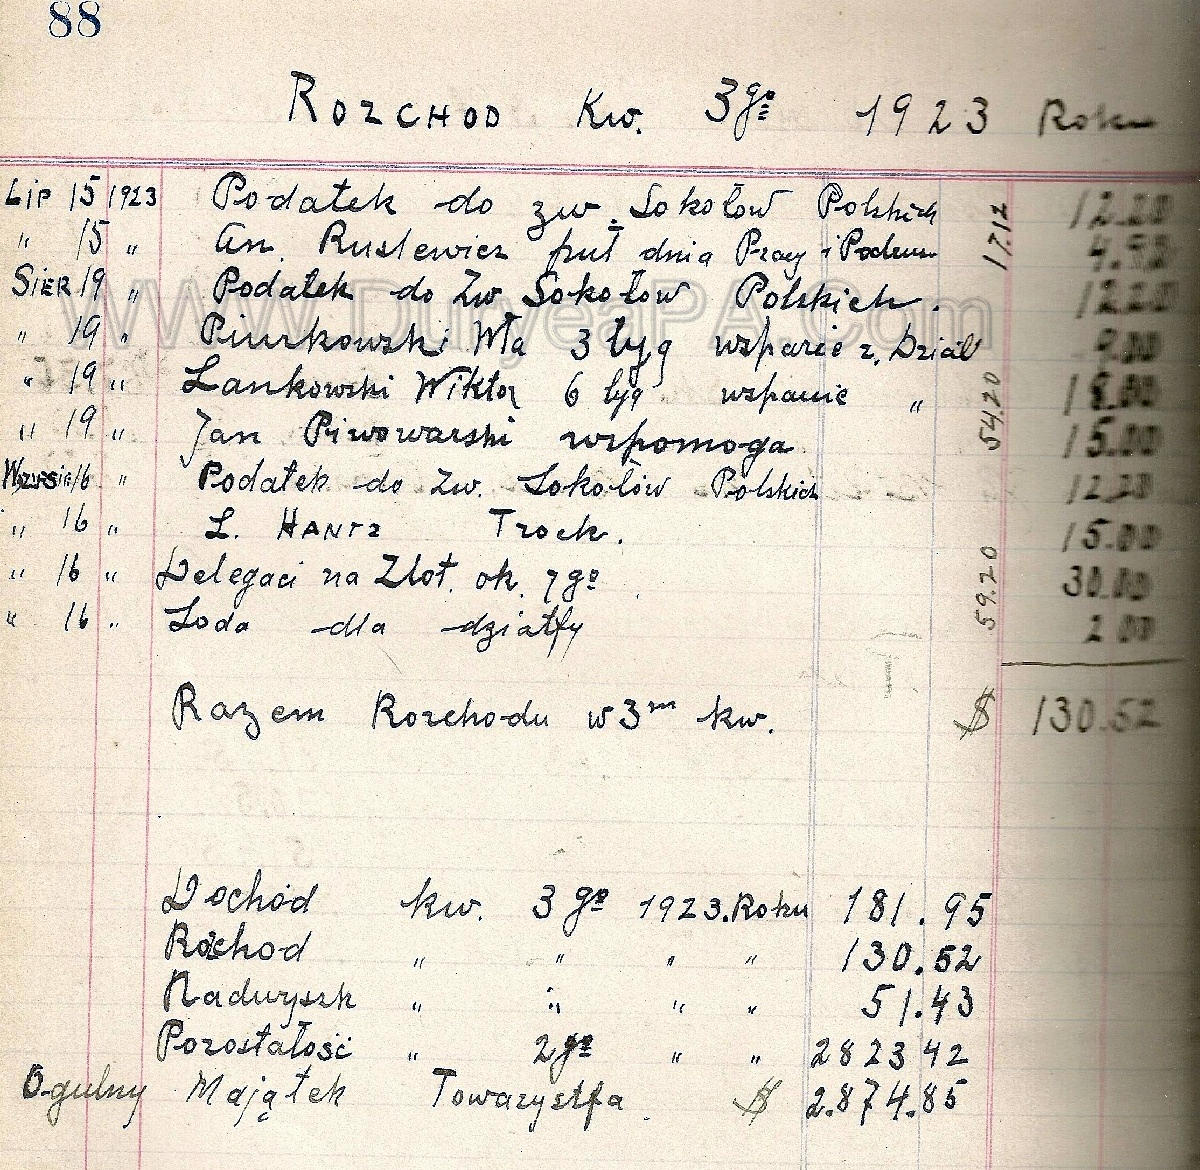 88
ROZCHOD Kw. 3go 1923 Roku
Lip 15 1923 Podatek do zw. Sokołów Polskich 12.20
" 15 " An. Ruslewicz puł dnia Pracy i 4.92
17.12
SIER 19 " Podatek do Zw Sokołow Polskich. 12.20
" 19 " Piurkowski Wła 3 tyg wsparcie z. Dział 9.00
" 19 " Lankowski Wiktor 6 tyg wsparcie " 18.00
" 19 " Jan Piwowarski wspomoga 15.00
54.20
16 " Podatek do Zw. Sokołów Polskich 12.20
" 16 " L. HANTZ Trock. 15.00
" 16 " Delegaci na Zlot. ok. 7go 30.00
" 16 " Soda dla dziatfy 2 00
59.20
Razem Rozchodu w 3m kw. $ 130.52
Dochód kw. 3go 1923. Roku 181.95
Rozchod " " " " 130.52
Nadwyszk " " " " 51.43
Pozostałość " 2go " " 2823 42
Ogulny Majątek Towarzystfa. $ 2.874.85
WWW.DuryeaPA.Com